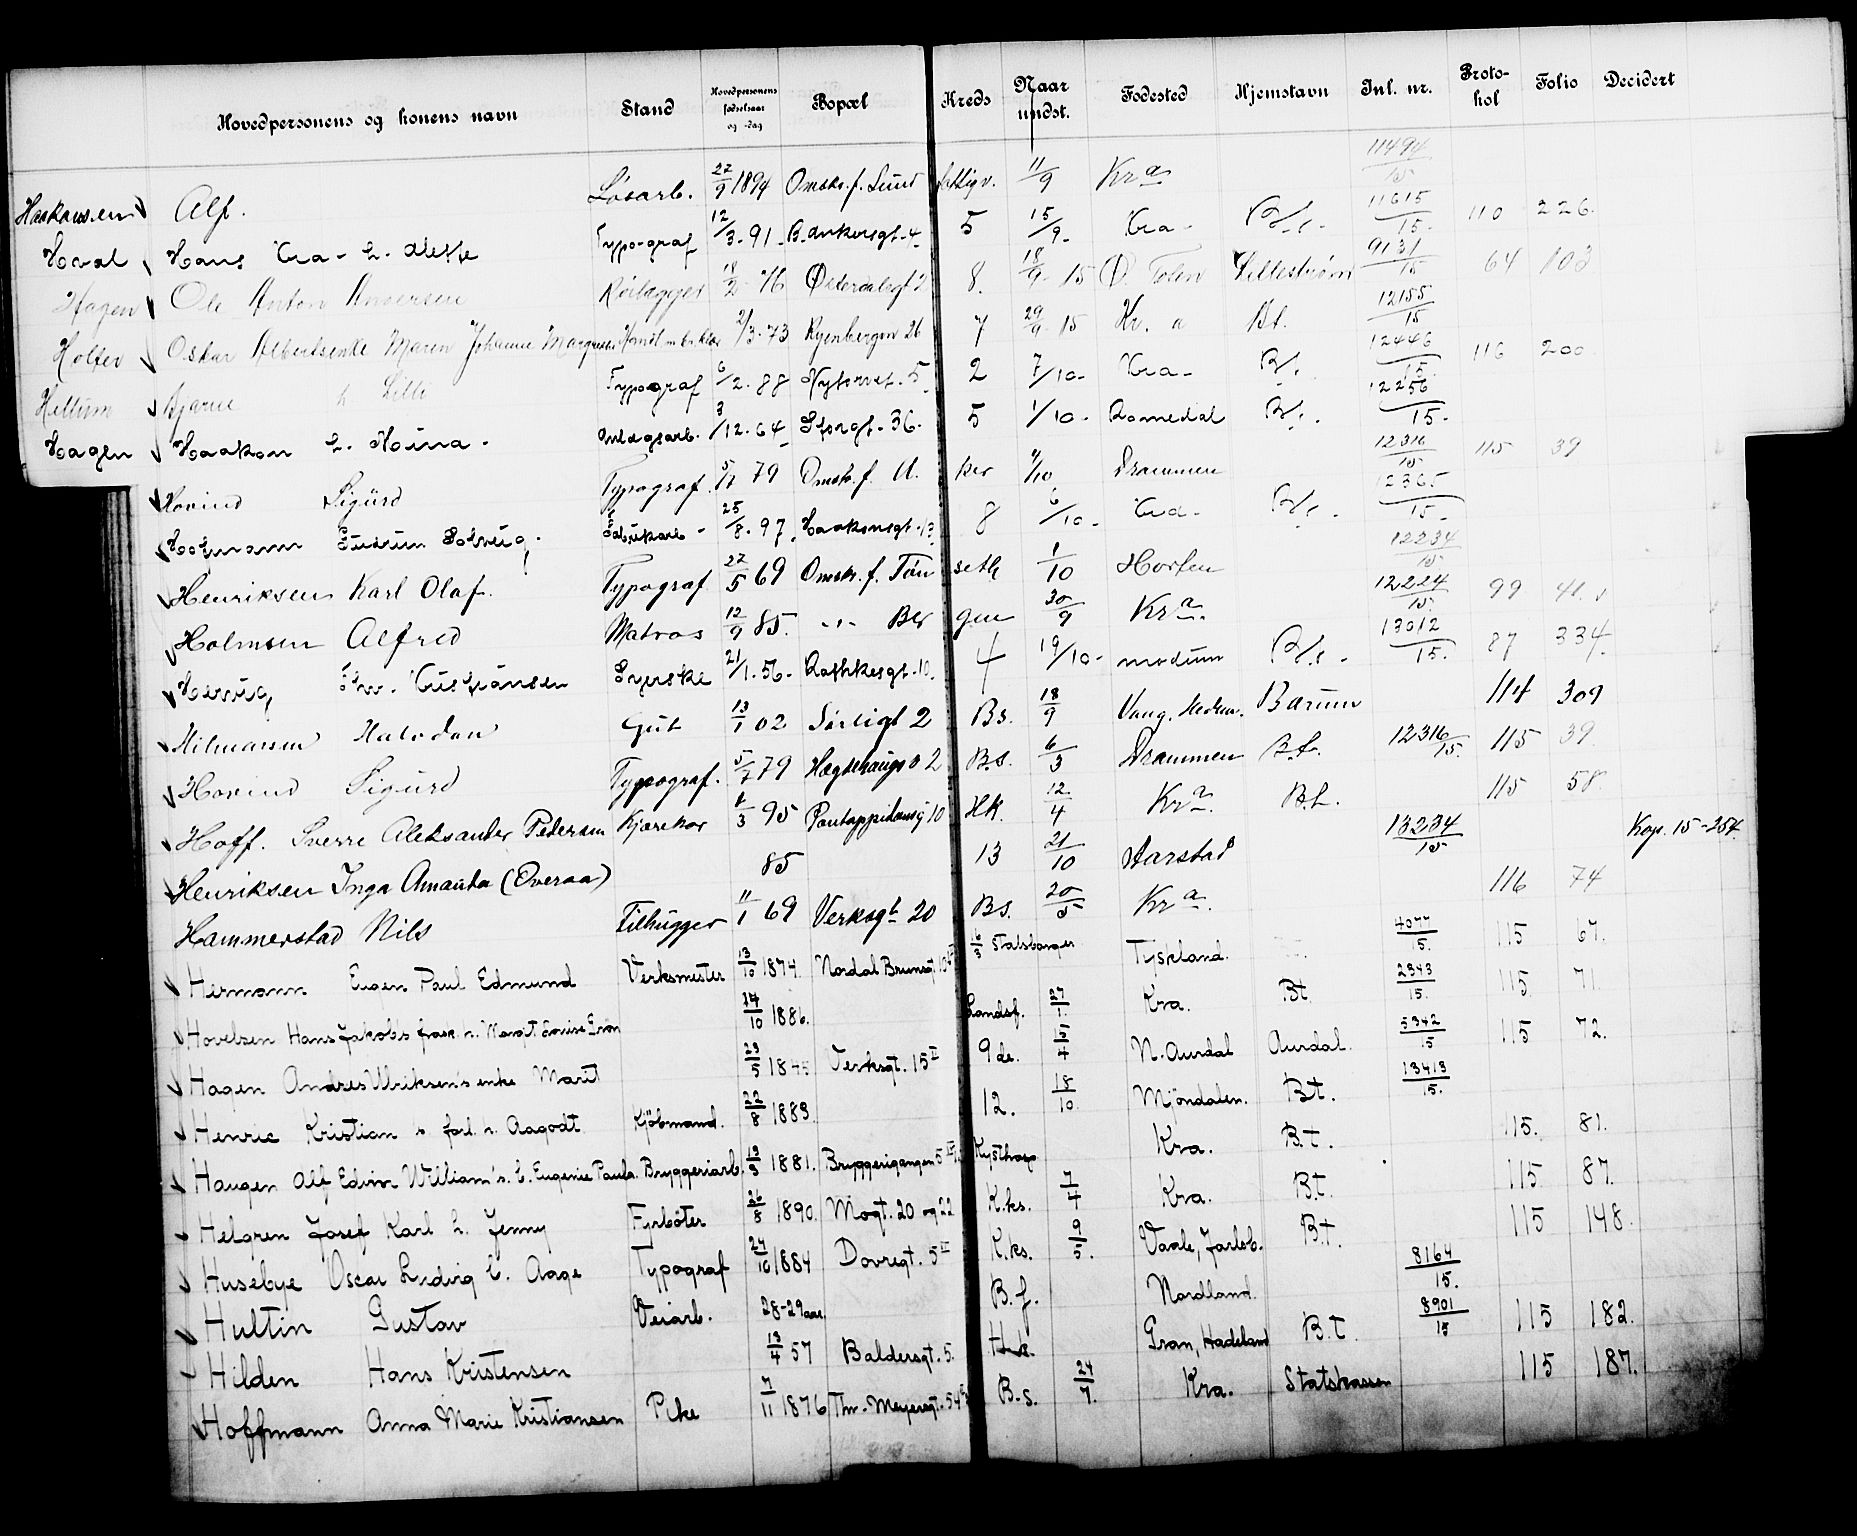 Hovedpersonens og konens navn Stand Hovedpersonens fødselsaar og -dag Bopæl Kreds Naar undst. Fødested Hjemstavn Inl. nr. Protokol Folio Decidert
Haakonsen Alf. Løsarb. 22/9 1894 Omstr. f. Lund fattigv. 11/9 Kra 11494/15
Hoval Hans Typograf 12/3-91 B. Ankersgt. 4 5 15/9- Kra- 11615/15- 110 226.
Hagen Ole Anton Andersen Rørlægger 18/2 76 Østerdalsgt 2 8. 18/9-15 Ø. Toten Lillestrøm 9131/15 64 103
Holter Oskar Albertsenke Maren Johanne 2/3-73 Ryenbergen 26 7 29/9-15 Kr. a Bt. 12155/15
Hellum Bjarne h. Lilli Typograf 6/2.88 Nytorvet. 5 2 7/10- Kra- 12446/15. 116 200
Hagen Haakon h. Mina. Anlægsarb. 3/12-64 Storgt. 36. 5 1/10- Romedal 12256/15-
Hovind Sigurd Typograf. 5/7 79 Omstr. f. A. ker 4/10 Drammen 12316/15 115 39
Hofmann Gudrun Solveig. Fabrikarb- 25/8-97. Haakonsgt. 13 8 6/10- Kra- 12365/15-
Henriksen Karl Olaf. Typograf 22/5 69 Omstr. f. Tøn seth 1/10 Horten 12234/15
Holmsen Alfred Matros 12/9 85. -"- Ber gen 30/9 Kra. 12224/15 99 41.
Hervig Fru. Kristiansen Syerske 21/1.56- Rathkesgt. 10. 4 19/10- Modum 13012/15. 87 334.
Hilmarsen Halvdan Gut 13/1 02 Sørligt 2 Bs. 18/9 Vang. Hedem. Bærum 114 309
Hovind Sigurd Typograf. 5/7 79 Hægdehaugsv 2 B.s. 6/3 Drammen B.t. 12316/15. 115 39.
Hoff. Sverre Aleksander Pedersen Kjørekar 4/3 95 Pontoppidansgt 10 Hk. 12/4 Kra. B.t. 115 58.
Henriksen Inga Amanda (Overaa) 85 13 21/10 Aarstad 13234/15 Kop. 15-254
Hammerstad Nils Tilhugger 11/1 69 Verksgt 20 Bs. 20/5 Kra. 116 74
Hermann Eugen Paul Edmund Verksmester 13/10 1874. Nordal Brunsgt. 6/3 Statsborger Tyskland. 4077/15. 115 67.
Hovelsen Hans Jakobs frask. h. Margit Louise 24/10 1886. Landsf. 27/1. Kra. Bt. 2343/15. 115 71.
Hagen Andres Ulriksen's enke Marit 23/5 1845 Verksgt. 15 II 9de. 15/4 N. Aurdal Aurdal. 5342/15 115 72.
Henrie Kristian s. forl. h. Aagodt Kjøbmand. 22/8 1883. 12. 18/10. Mjøndalen. Bt. 13413/15.
Haugen Alf Edvin William's h. Eugenie Paula. Bryggeriarb. 13/3 1881. Bryggerigangen 5 Kysthosp. Kra. B.t. 115. 81.
Helgren Josef Karl h. Jenny Fyrbøter 26/8 1890. Mogt. 20 og 22 K.ks. 7/4 Kra. B.t. 115 87.
Husebye Oscar Ludvig h. Aage Typograf 24/10 1884 Dovregt. 5 II K.ks. 9/5. Vaale, Jarlsb. B.t. 115 148.
Hultin Gustav Veiarb. 28-29 aar. B.f. Nordland. 8164/15.
Hilden Hans Kristensen 13/4 57 Baldersgt. 5. H.k. Gran, Hadeland B.t. 8901/15 115 182.
Hoffmann Anna Marie Kristiansen Pike 7/11 1876 Thv. Meyersgt. 54 B.s. 24/7. Kra. Statskassen 115 187.